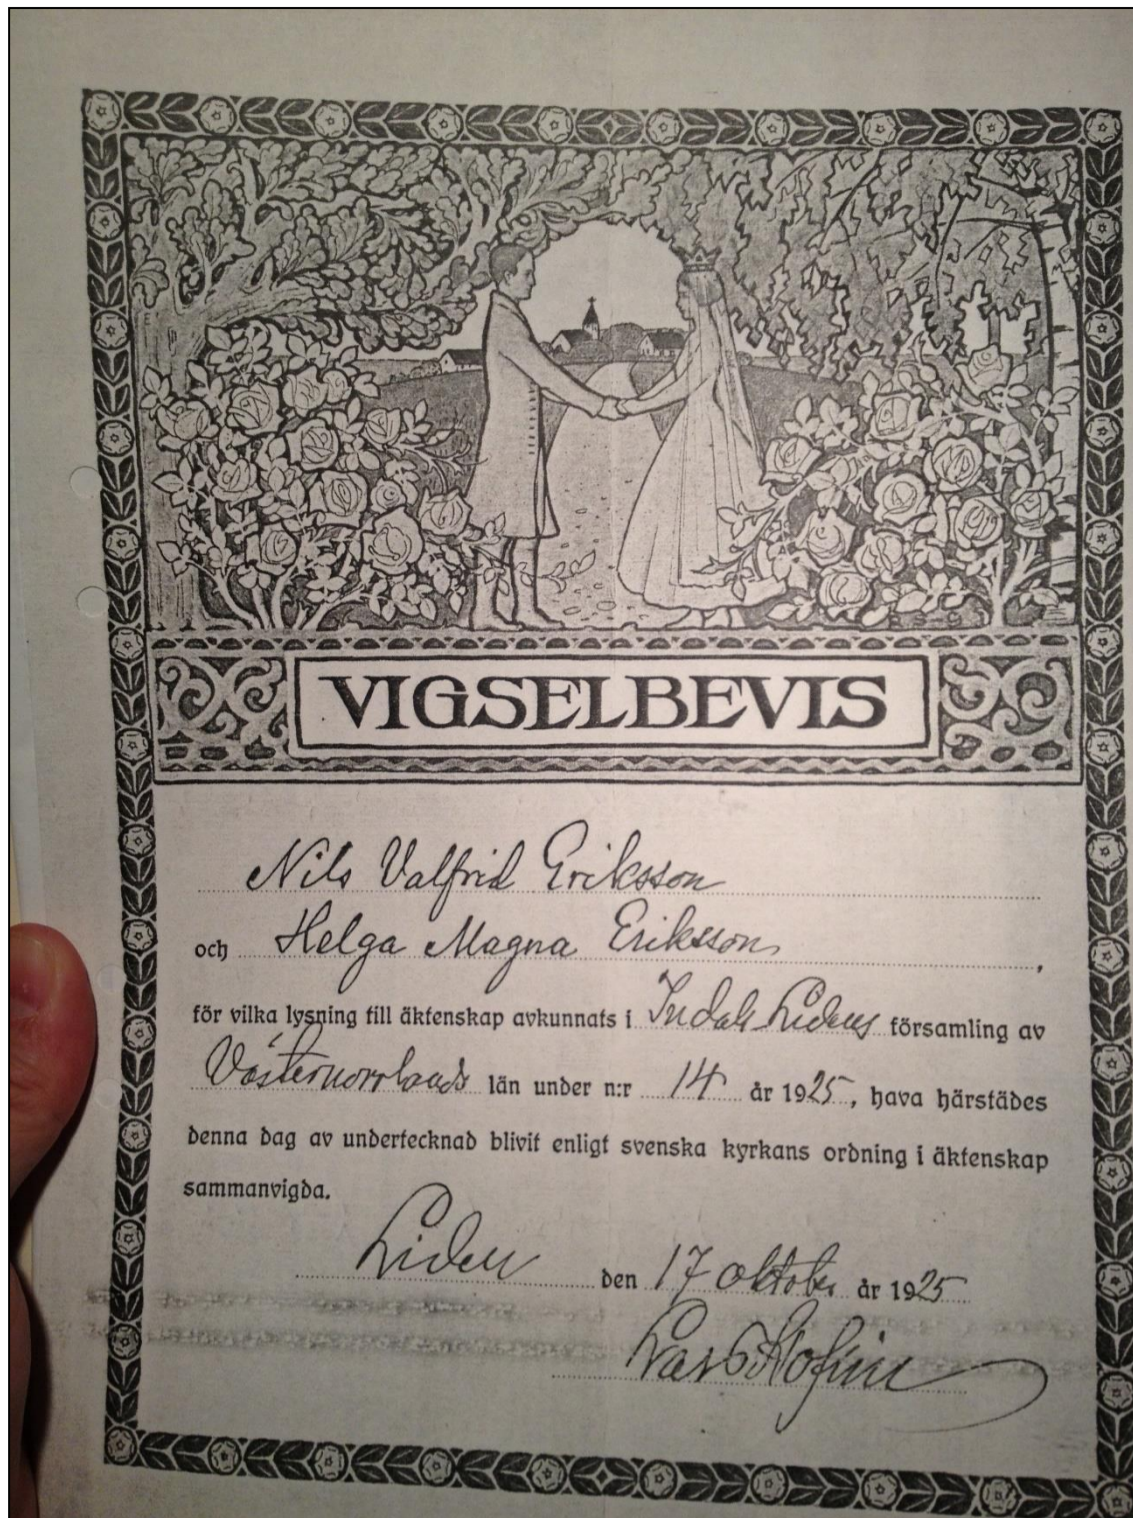 VIGSELBEVIS
Nils Valfrid Eriksson
och Helga Magna Eriksson,
för vilka lysning till äktenskap avkunnats i Indals-Lidens församling av
Västernorrlands län under n:r 14 år 1925, hava härstädes
denna dag av undertecknad blivit enligt svenska kyrkans ordning i äktenskap
sammanvigda.
Liden den 17 oktober år 1925